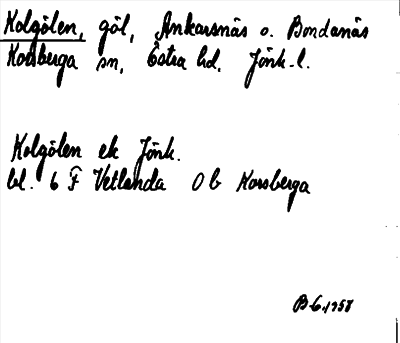 Kolgölen, göl, Ankarsnäs o. Bondanäs
Korsberga sn, Östra hd, Jönk. l.
Kolgölen ek Jönk.
bl. 6 F Vetlanda 0 b Korsberga
B-G. 1958